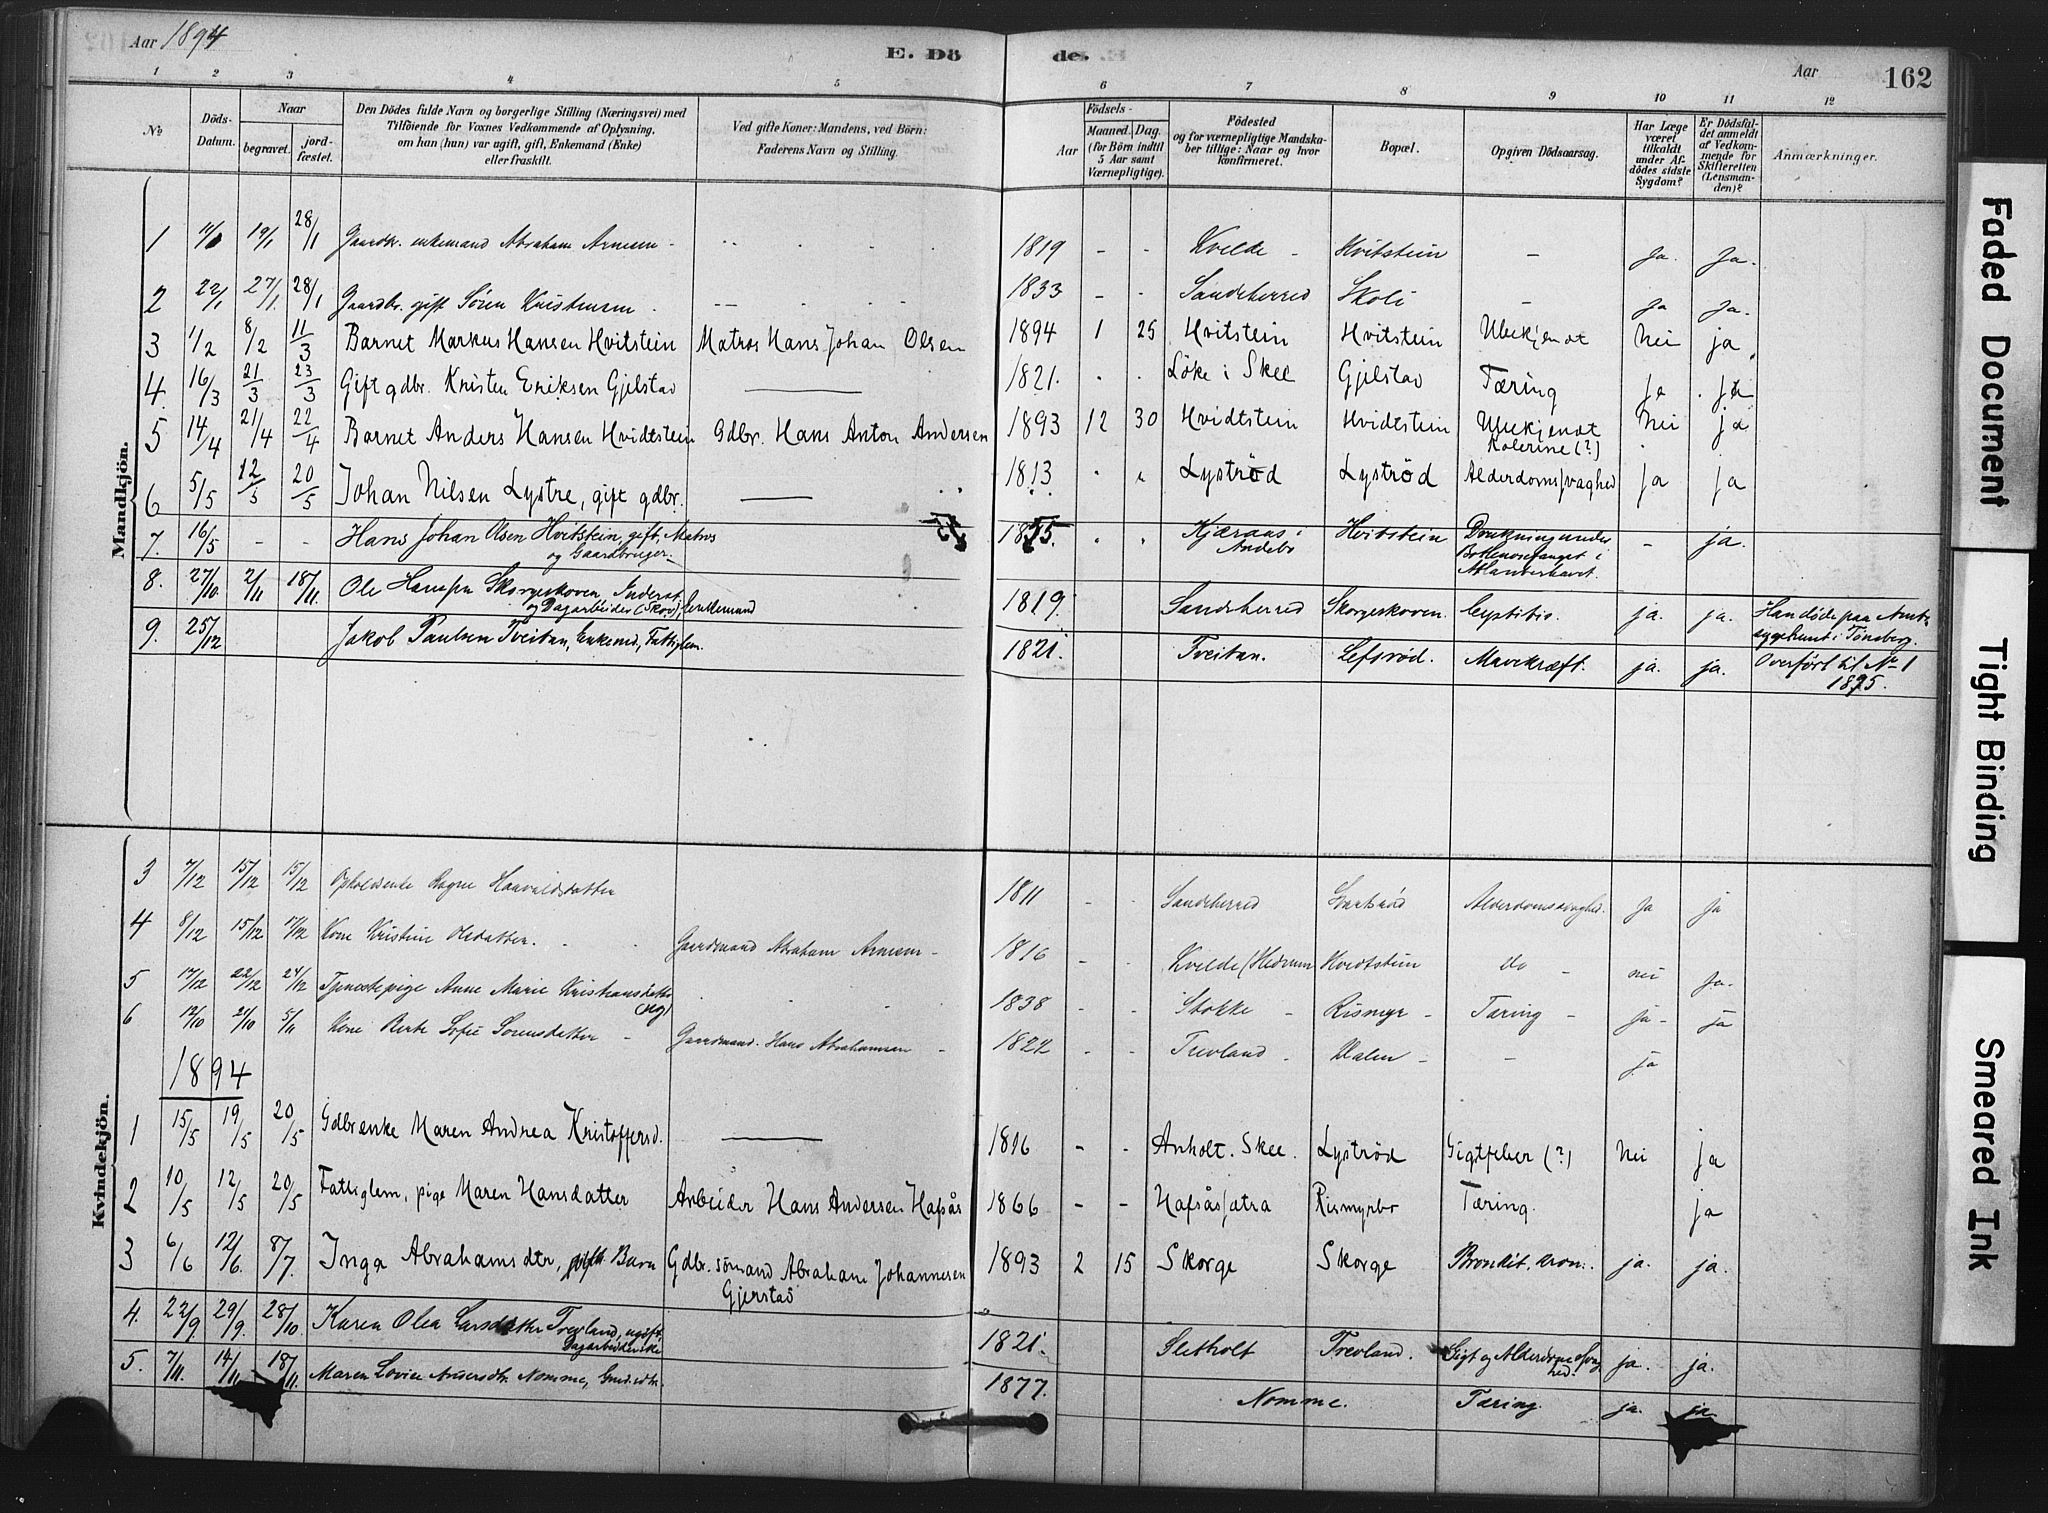 Aar 1894
E. Dö
de.
Aar
162
1 2 3 4 5 6 7 8 9 10 11 12
№
Döds-Datum.
Naar
begravet.
jord-fæstet.
Den Dödes fulde Navn og borgerlige Stilling (Næringsvei) med
Tilföiende for Voxnes Vedkommende af Oplysning,
om han (hun) var ugift, gift, Enkemand (Enke)
eller fraskilt.
Ved gifte Koner: Mandens, ved Börn:
Faderens Navn og Stilling.
Födsels-
Aar
Maaned.
Dag.
(for Börn indtil
5 Aar samt
Værnepligtige).
Födested
og for værnepligtige Mandska-
ber tillige: Naar og hvor
konfirmeret.
Bopæl.
Opgiven Dödsaarsag.
Har Læge
været
tilkaldt
under Af-
dödes sidste
Sygdom?
Er Dödsfal-
det anmeldt
af Vedkom-
mende for
Skifteretten
(Lensman-
den)?
Anmærkninger.
Mandkjön.
1 19/1 28/1 Gaardbr. enkemand Abraham Arnesen - 1819 - - Kvelde - Hvitstein - Ja. Ja.
2 22/1 27/1 28/1 Gaardbr. gift Sören Kristensen 1833 - - Sandeherred Skoli - Ja Ja.
3 1/2 8/2 11/3 Barnet Markus Hansen Hvitstein Matros Hans Johan Olsen 1894 1 25 Hvitstein Hvitstein Ubekjendt Nei ja
4. 16/3 21/3 23/3 Gift gdbr. Kristen Eriksen Gjelstad 1821. Löke i Skee Gjelstad Tæring Ja Ja
5 14/4 21/4 22/4 Barnet Anders Hansen Hvidtstein Gdbr. Hans Anton Andersen 1893 12 30 Hvidtstein Hvidtstein Ubekjendt Kolerine (?) Nei ja
6 5/5 12/5 20/5 Johan Nilsen Lystre, gift gdbr. 1813 Lyströd Lyströd Alderdomssvaghed Ja Ja
7. 16/5 - - Hans Johan Olsen Hvitstein, gift, Matros
og Gaardbruger. Kjæraas i Andebo Hvitstein Drukning under
Bottlenosefanget i
Atlanterhavet. - ja.
8. 27/10 2/11 18/11. Ole Hansen Skorgeskoven, Inderst
og Dagarbeider (Skov), Enkemand 1819. Sandeherred Skorgeskoven. Cystitis. ja. ja. Han döde paa Amts
sygehuset i Tönsberg.
9. 25/12 Jakob Paulsen Tveitan, Enkemd, Fattiglem. 1821. Tveitan. Lefsröd. Mavekræft. ja. ja. Overfört til № 1
1895.
Kvindekjön.
3 7/12 15/12 15/12 Opholdsenke Ragne Haavaldsdatter 1811 - - Sandeherred Svartsröd Alderdomssvaghed. Ja ja
4 8/12 15/12 17/12 Kone Kristine Olsdatter. Gaardmand Abraham Arnesen - 1816 - - Kvelde (Hedrum Hvidtstein do - nei Ja.
5 17/12 22/12 24/12 Tjenestepige Anne Marie Kristiansdatter
(ug) 1838 - - Stokke - Rismyr - Tæring - ja - ja
6 12/10 21/10 5/11 Kone Berte Sofie Sorensdatter - Gaardmand. Hans Abrahamsen - 1822 - - Trevland - Dalen - - ja
1894
1 15/5 19/5 20/5 Gdbrenke Maren Andrea Kristoffersd. 1816 - - Anholt. Skee. Lyströd Gigtfeber (?) Nei ja
2 10/5 12/5 20/5 Fattiglem, pige Maren Hansdatter Arbeider Hans Andersen Hafsås 1866 - - Hafsåssætra Rismyrbr Tæring. ja
3 6/6 12/6. 8/7. Inga Abrahamsdtr, Barn Gdbr. sömand Abraham Johannesen
Gjerstad 1893 2 15 Skorge Skorge Bronkit. kron. ja. ja.
4. 22/9 29/9. 28/10. Karen Olea Larsdatter Trevland, ugift,
Dagarbeiderske 1821. Sletholt Trevland. Gigt og Alderdomssvag
hed. ja. ja.
5. 7/11. 14/11 18/11. Maren Lovise Andersdtr. Nomme, 1877. Nomme. Tæring. ja. ja
Faded Document
Tight Binding
Smeared Ink